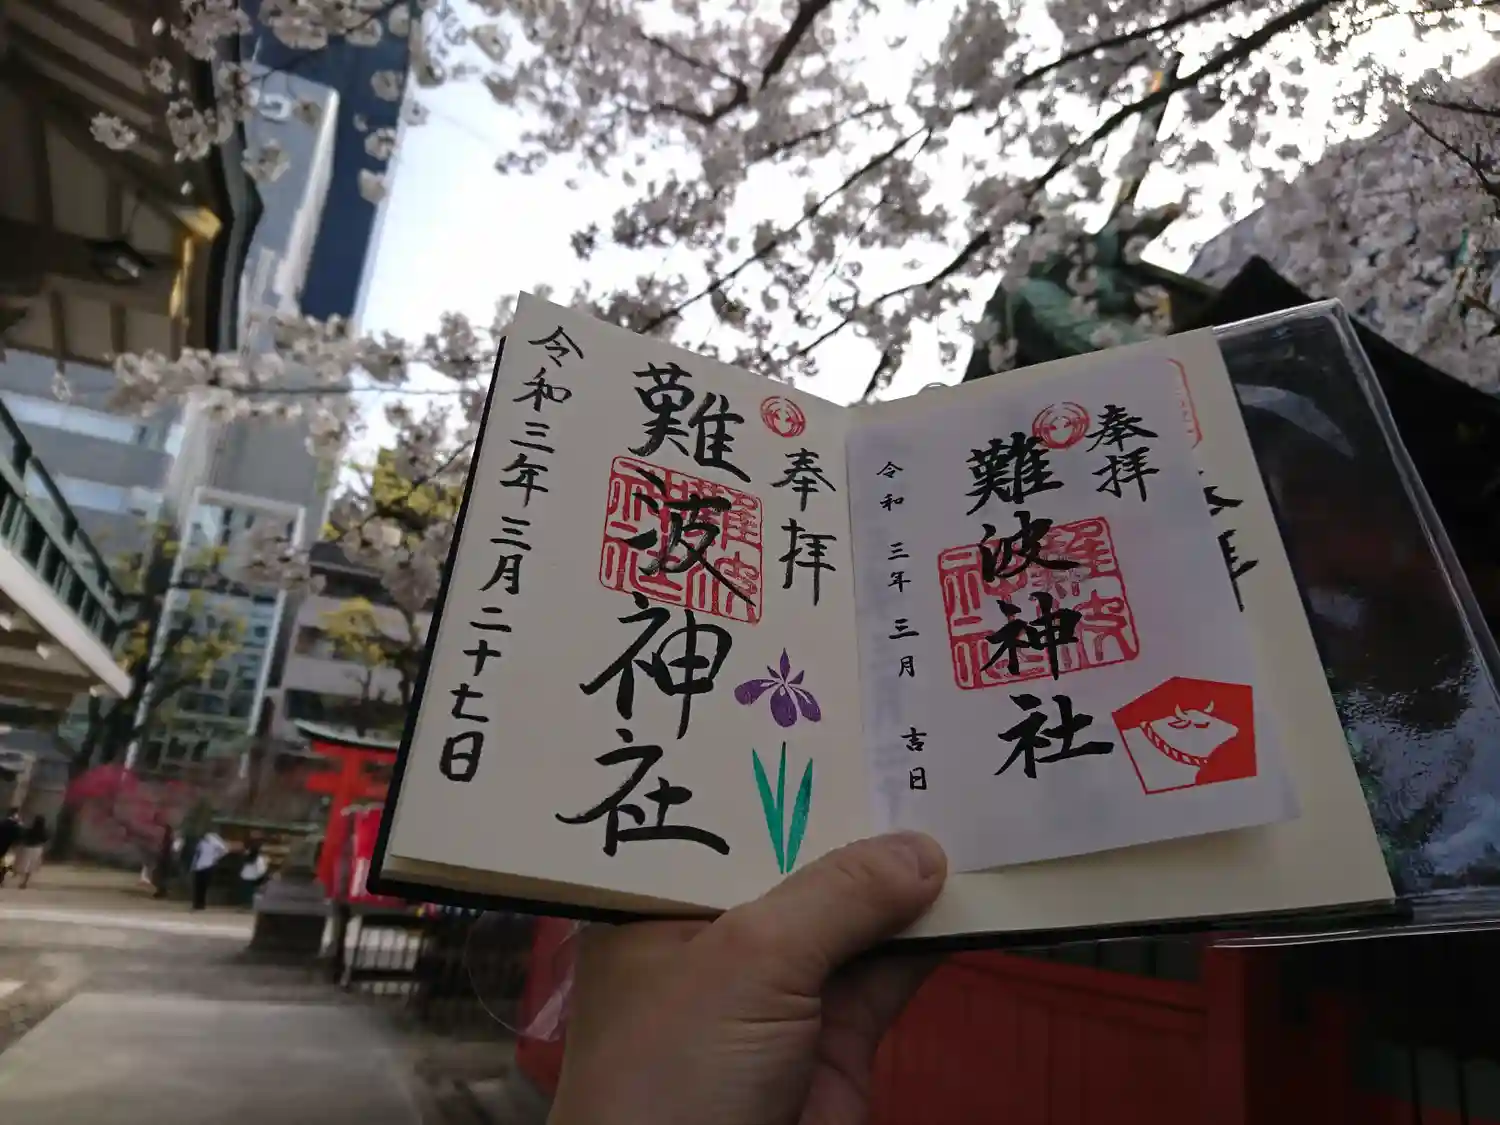 奉拝
難波神社
令和三年三月吉日
奉拝
難波神社
令和三年三月二十七日